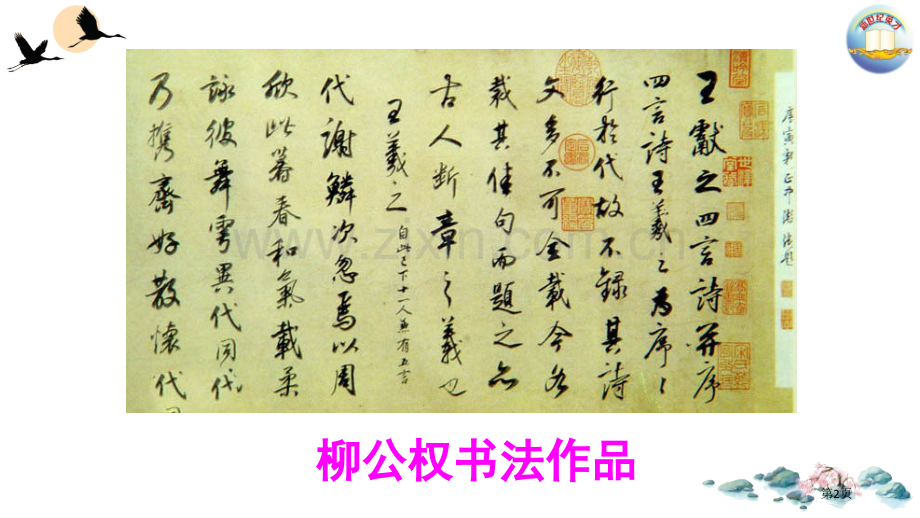 新世纪英才
王獻之四言詩并序
四言詩王羲之為序〻
行於代故不錄其詩
文多不可全載今各
裁其佳句而題之亦
古人斷章之義也
王羲之 自此已下十一人並有五言
代謝鱗次忽焉以周
欣此暮春和氣載柔
詠彼舞雩異代同代
乃携齊好散懷代
www.zixin.com.cn
柳公权书法作品
第2页